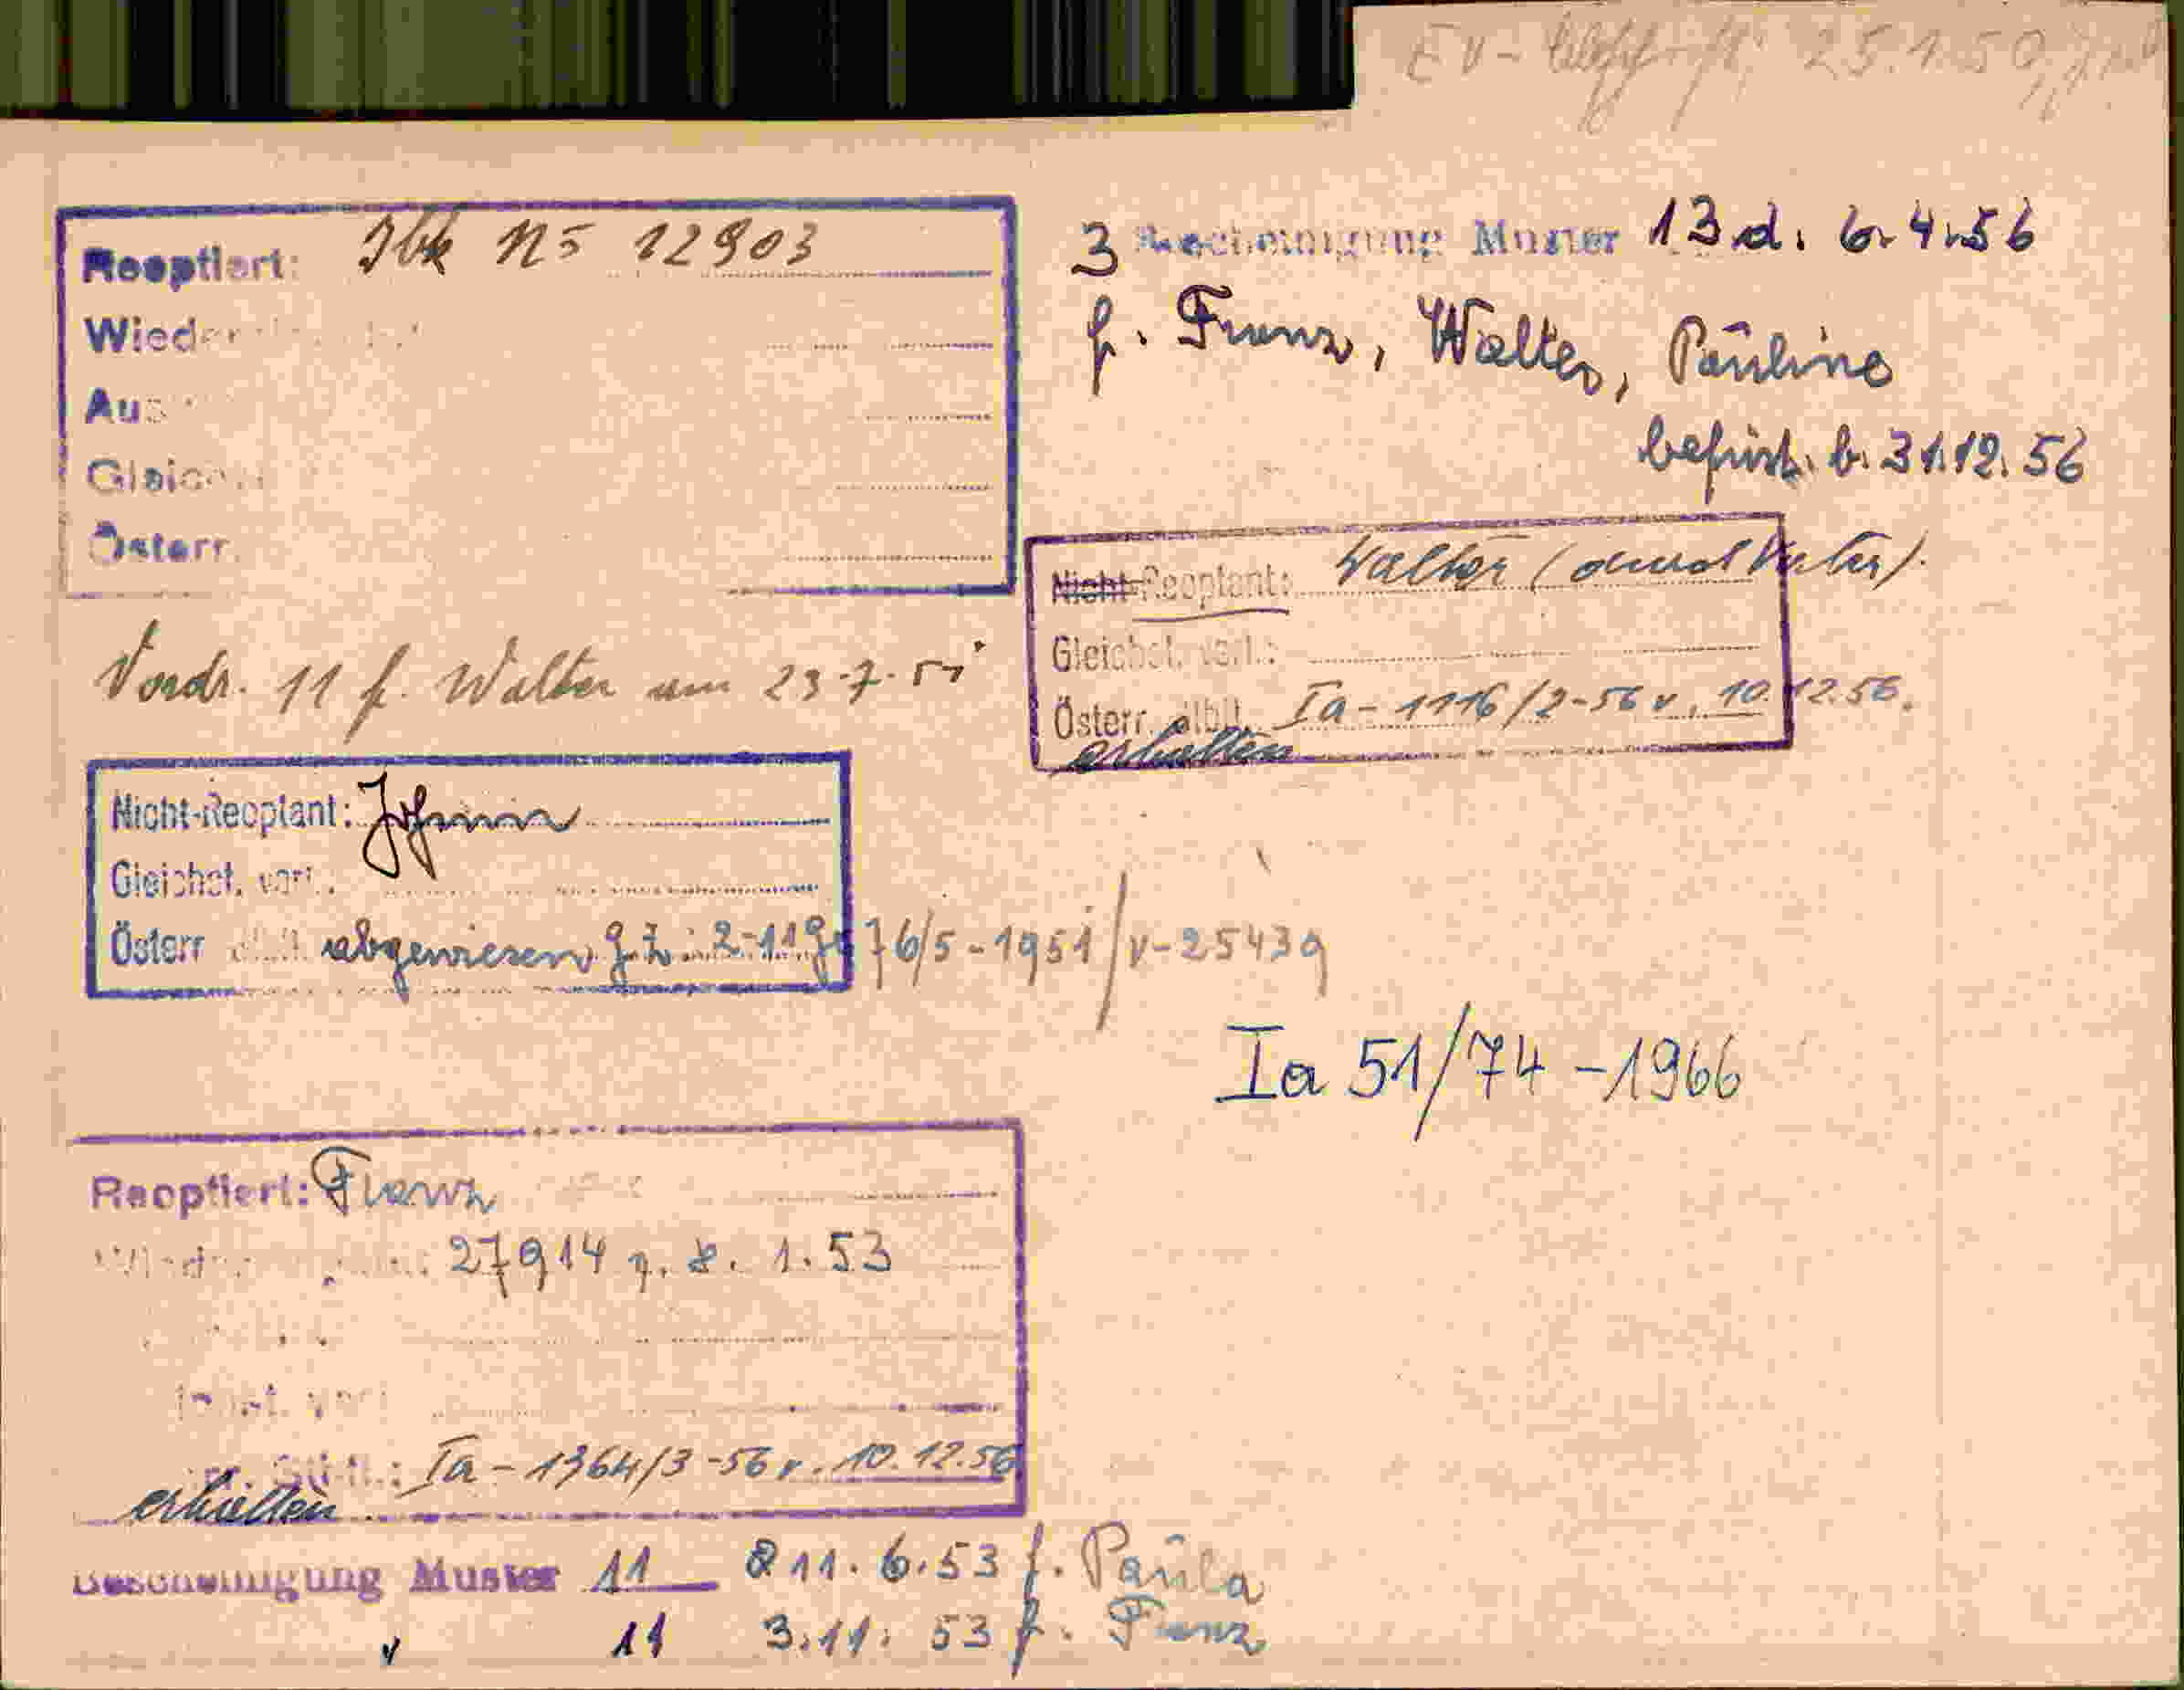 EV- 25.1.50
Reoptiert: Jbk N5 12903
Wieder
Aus
Gleich
Österr.
3 Bescheinigung Muster 13 d. 6.4.56
f. Franz, Walter, Pauline
befrist. b. 31.12.56
Nicht-Reoptant: Walter (durch Vater).
Gleichst. verl.:
Österr. Ia - 1116/2-56 v. 10.12.56.
erhalten
Vordr. 11 f. Walter am 23.7.51
Nicht-Reoptant: Johann
Gleichst. verl.:
Österr abgewiesen g. Z.: 2-119976/5-1951/V-25439
Ia 51/74 - 1966
Reoptiert: Franz
27914 v. 8. 1. 53
Ia - 1364/3-56 v. 10.12.56
erhalten
Bescheinigung Muster 11 11. 6. 53 f. Paula
" 11 3. 11. 53 f. Franz